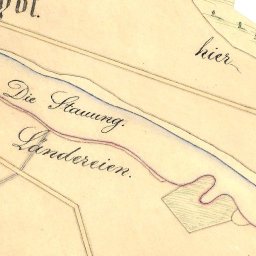 hier
Die Stauung.
Ländereien.